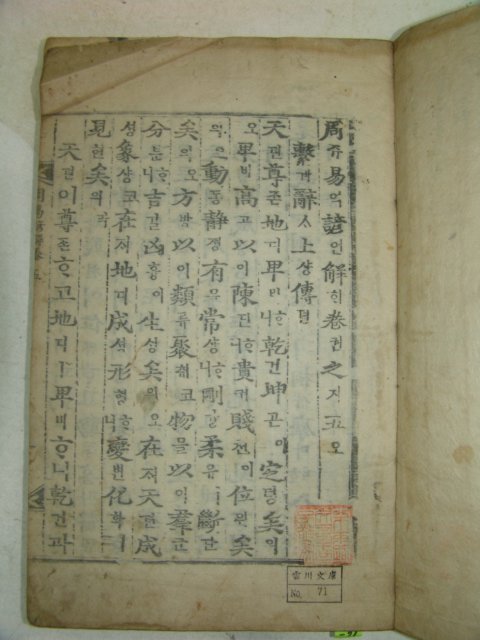 周쥬易역諺언解ᄒᆡ卷권之지五오
繫계辭ᄉᆞ上샹傳뎐
天텬尊존地디卑비ᄒᆞ니乾건坤곤이定뎡矣의
오卑비高고以이陳딘ᄒᆞ니貴귀賤쳔이位위矣
의오動동靜졍有유常샹ᄒᆞ니剛강柔유ㅣ斷단
矣의오方방以이類류聚ᄎᆔ코物믈以이羣군
分분ᄒᆞ니吉길凶흉이生ᄉᆡᆼ矣의오在ᄌᆡ天텬成
셩象샹코在ᄌᆡ地디成셩形형ᄒᆞ니變변化화ㅣ
見현矣의라
天텬이尊존ᄒᆞ고地디ㅣ卑비ᄒᆞ니乾건과
雲川文庫
No. 71